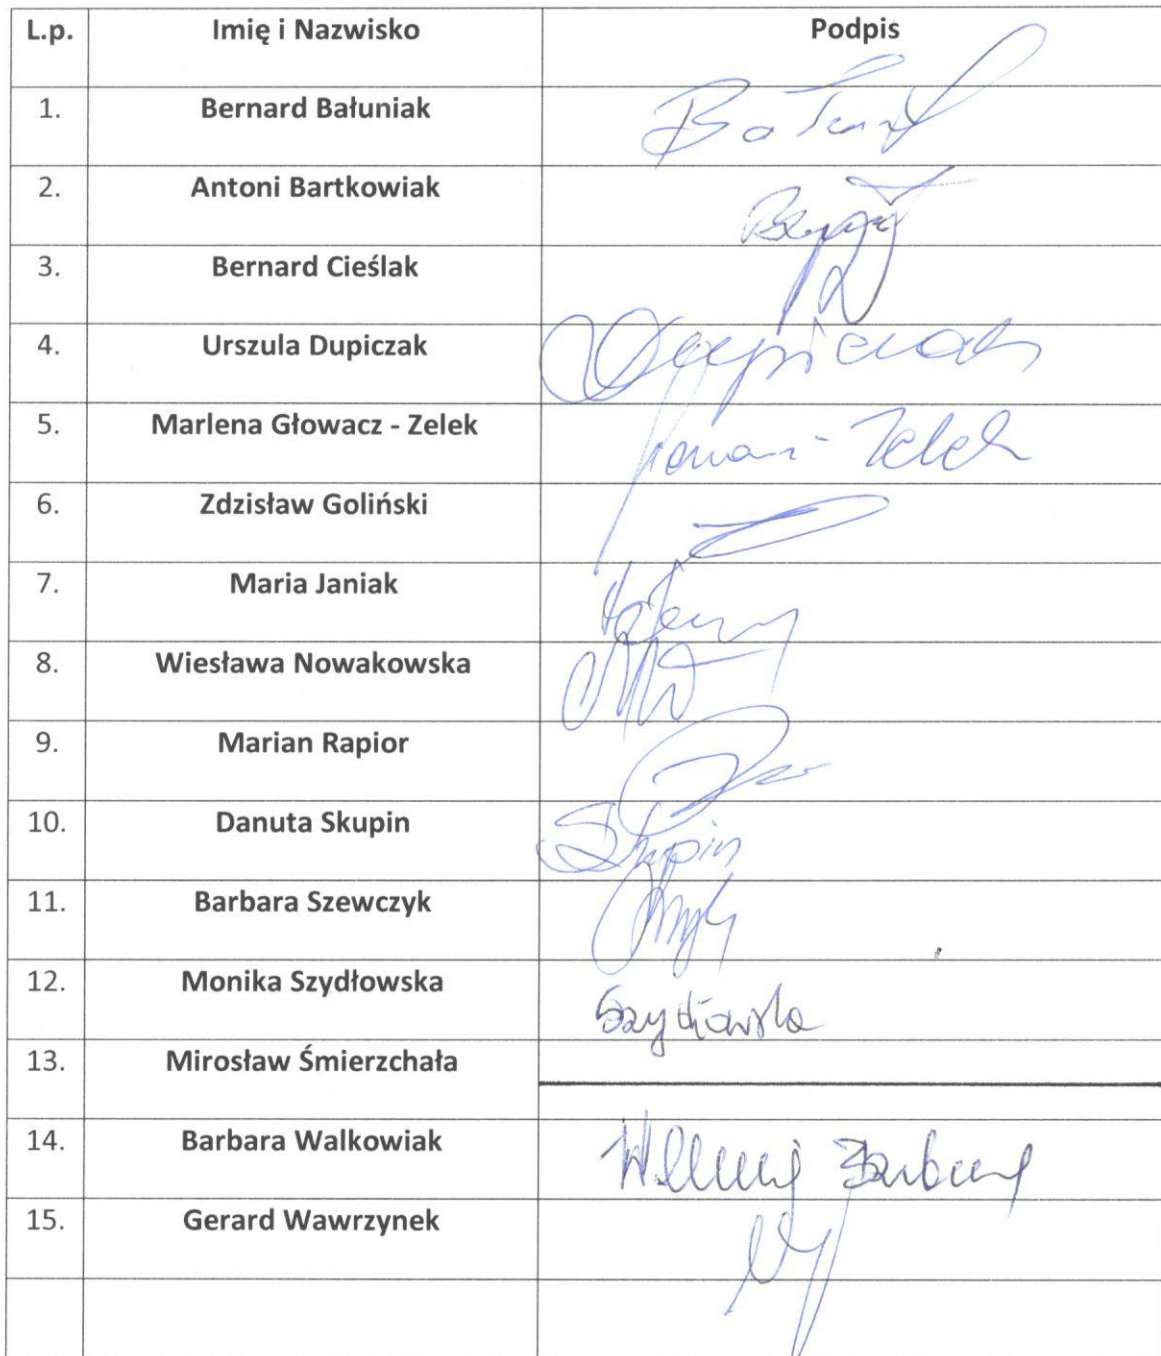 L.p. Imię i Nazwisko Podpis
1. Bernard Bałuniak
2. Antoni Bartkowiak
3. Bernard Cieślak
4. Urszula Dupiczak Dupiczak
5. Marlena Głowacz - Zelek - Zelek
6. Zdzisław Goliński
7. Maria Janiak
8. Wiesława Nowakowska
9. Marian Rapior
10. Danuta Skupin Skupin
11. Barbara Szewczyk
12. Monika Szydłowska Szydłowska
13. Mirosław Śmierzchała
14. Barbara Walkowiak
15. Gerard Wawrzynek